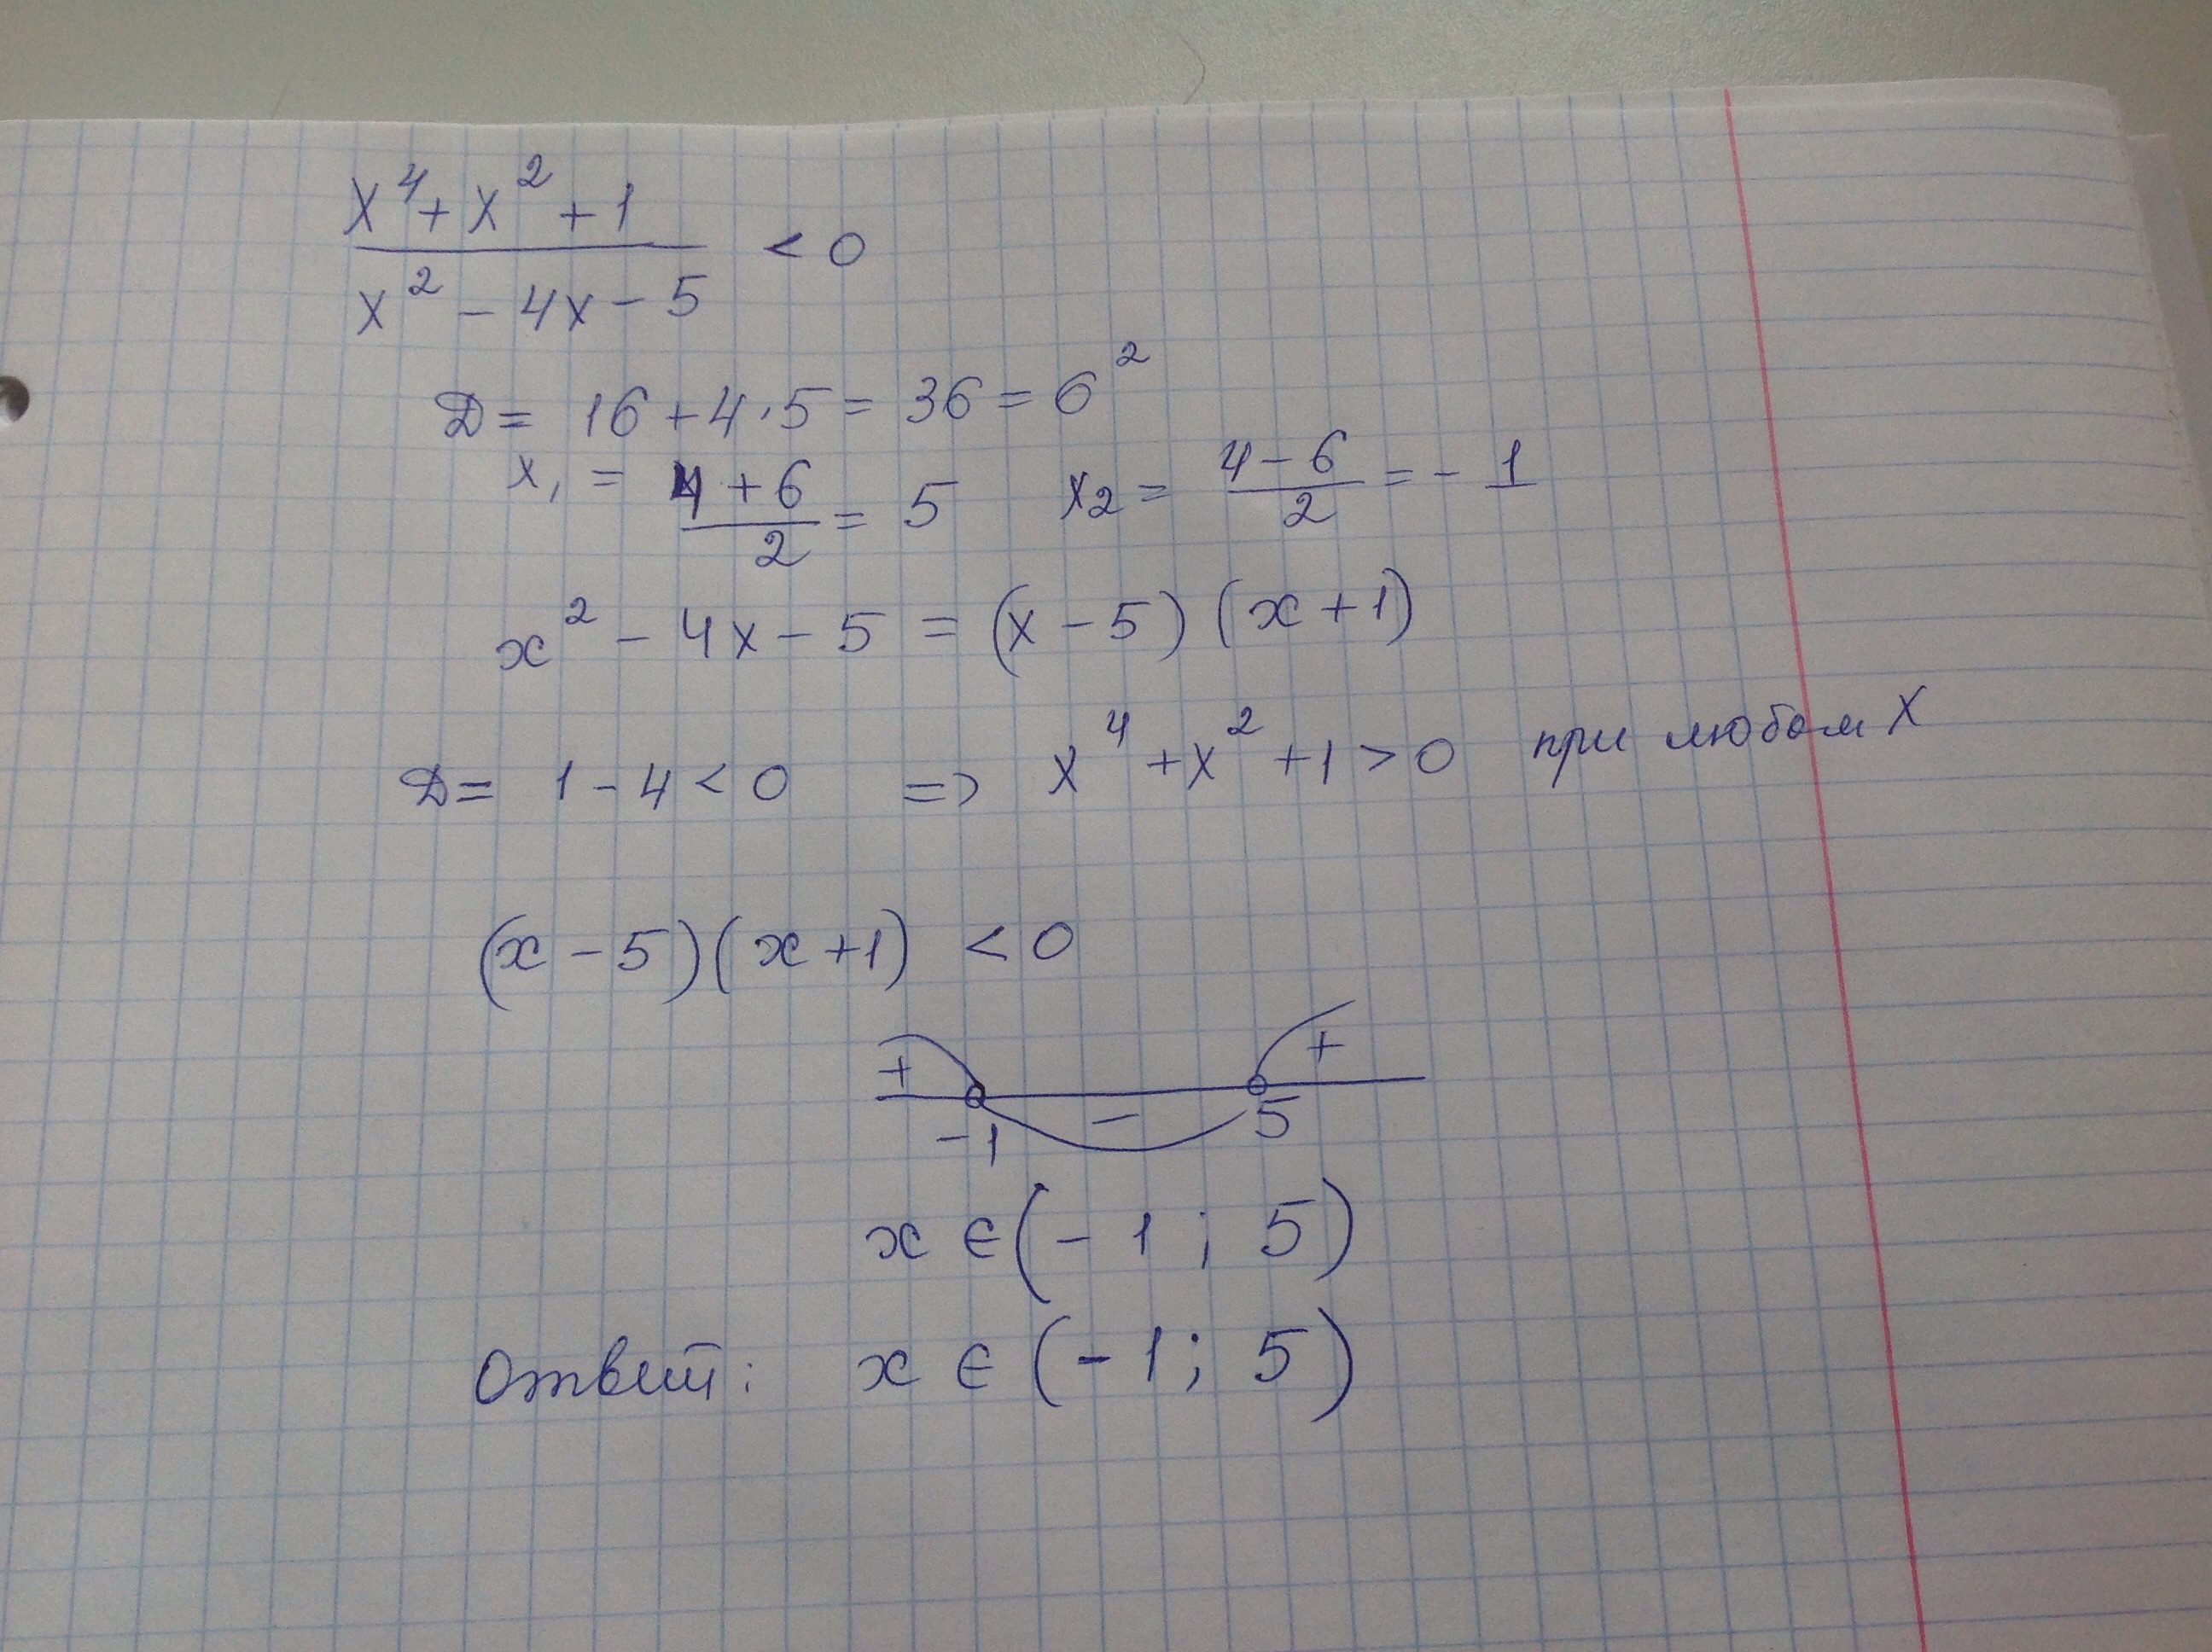 x⁴ + x² + 1
x² - 4x - 5 < 0
Д = 16 + 4·5 = 36 = 6²
x₁ = (4 + 6)/2 = 5 x₂ = (4 - 6)/2 = - 1
x² - 4x - 5 = (x - 5) (x + 1)
Д = 1 - 4 < 0 => x⁴ + x² + 1 > 0 при любом x
(x - 5)(x + 1) < 0
+ - +
-1 5
x ∈ (-1; 5)
Ответ: x ∈ (-1; 5)